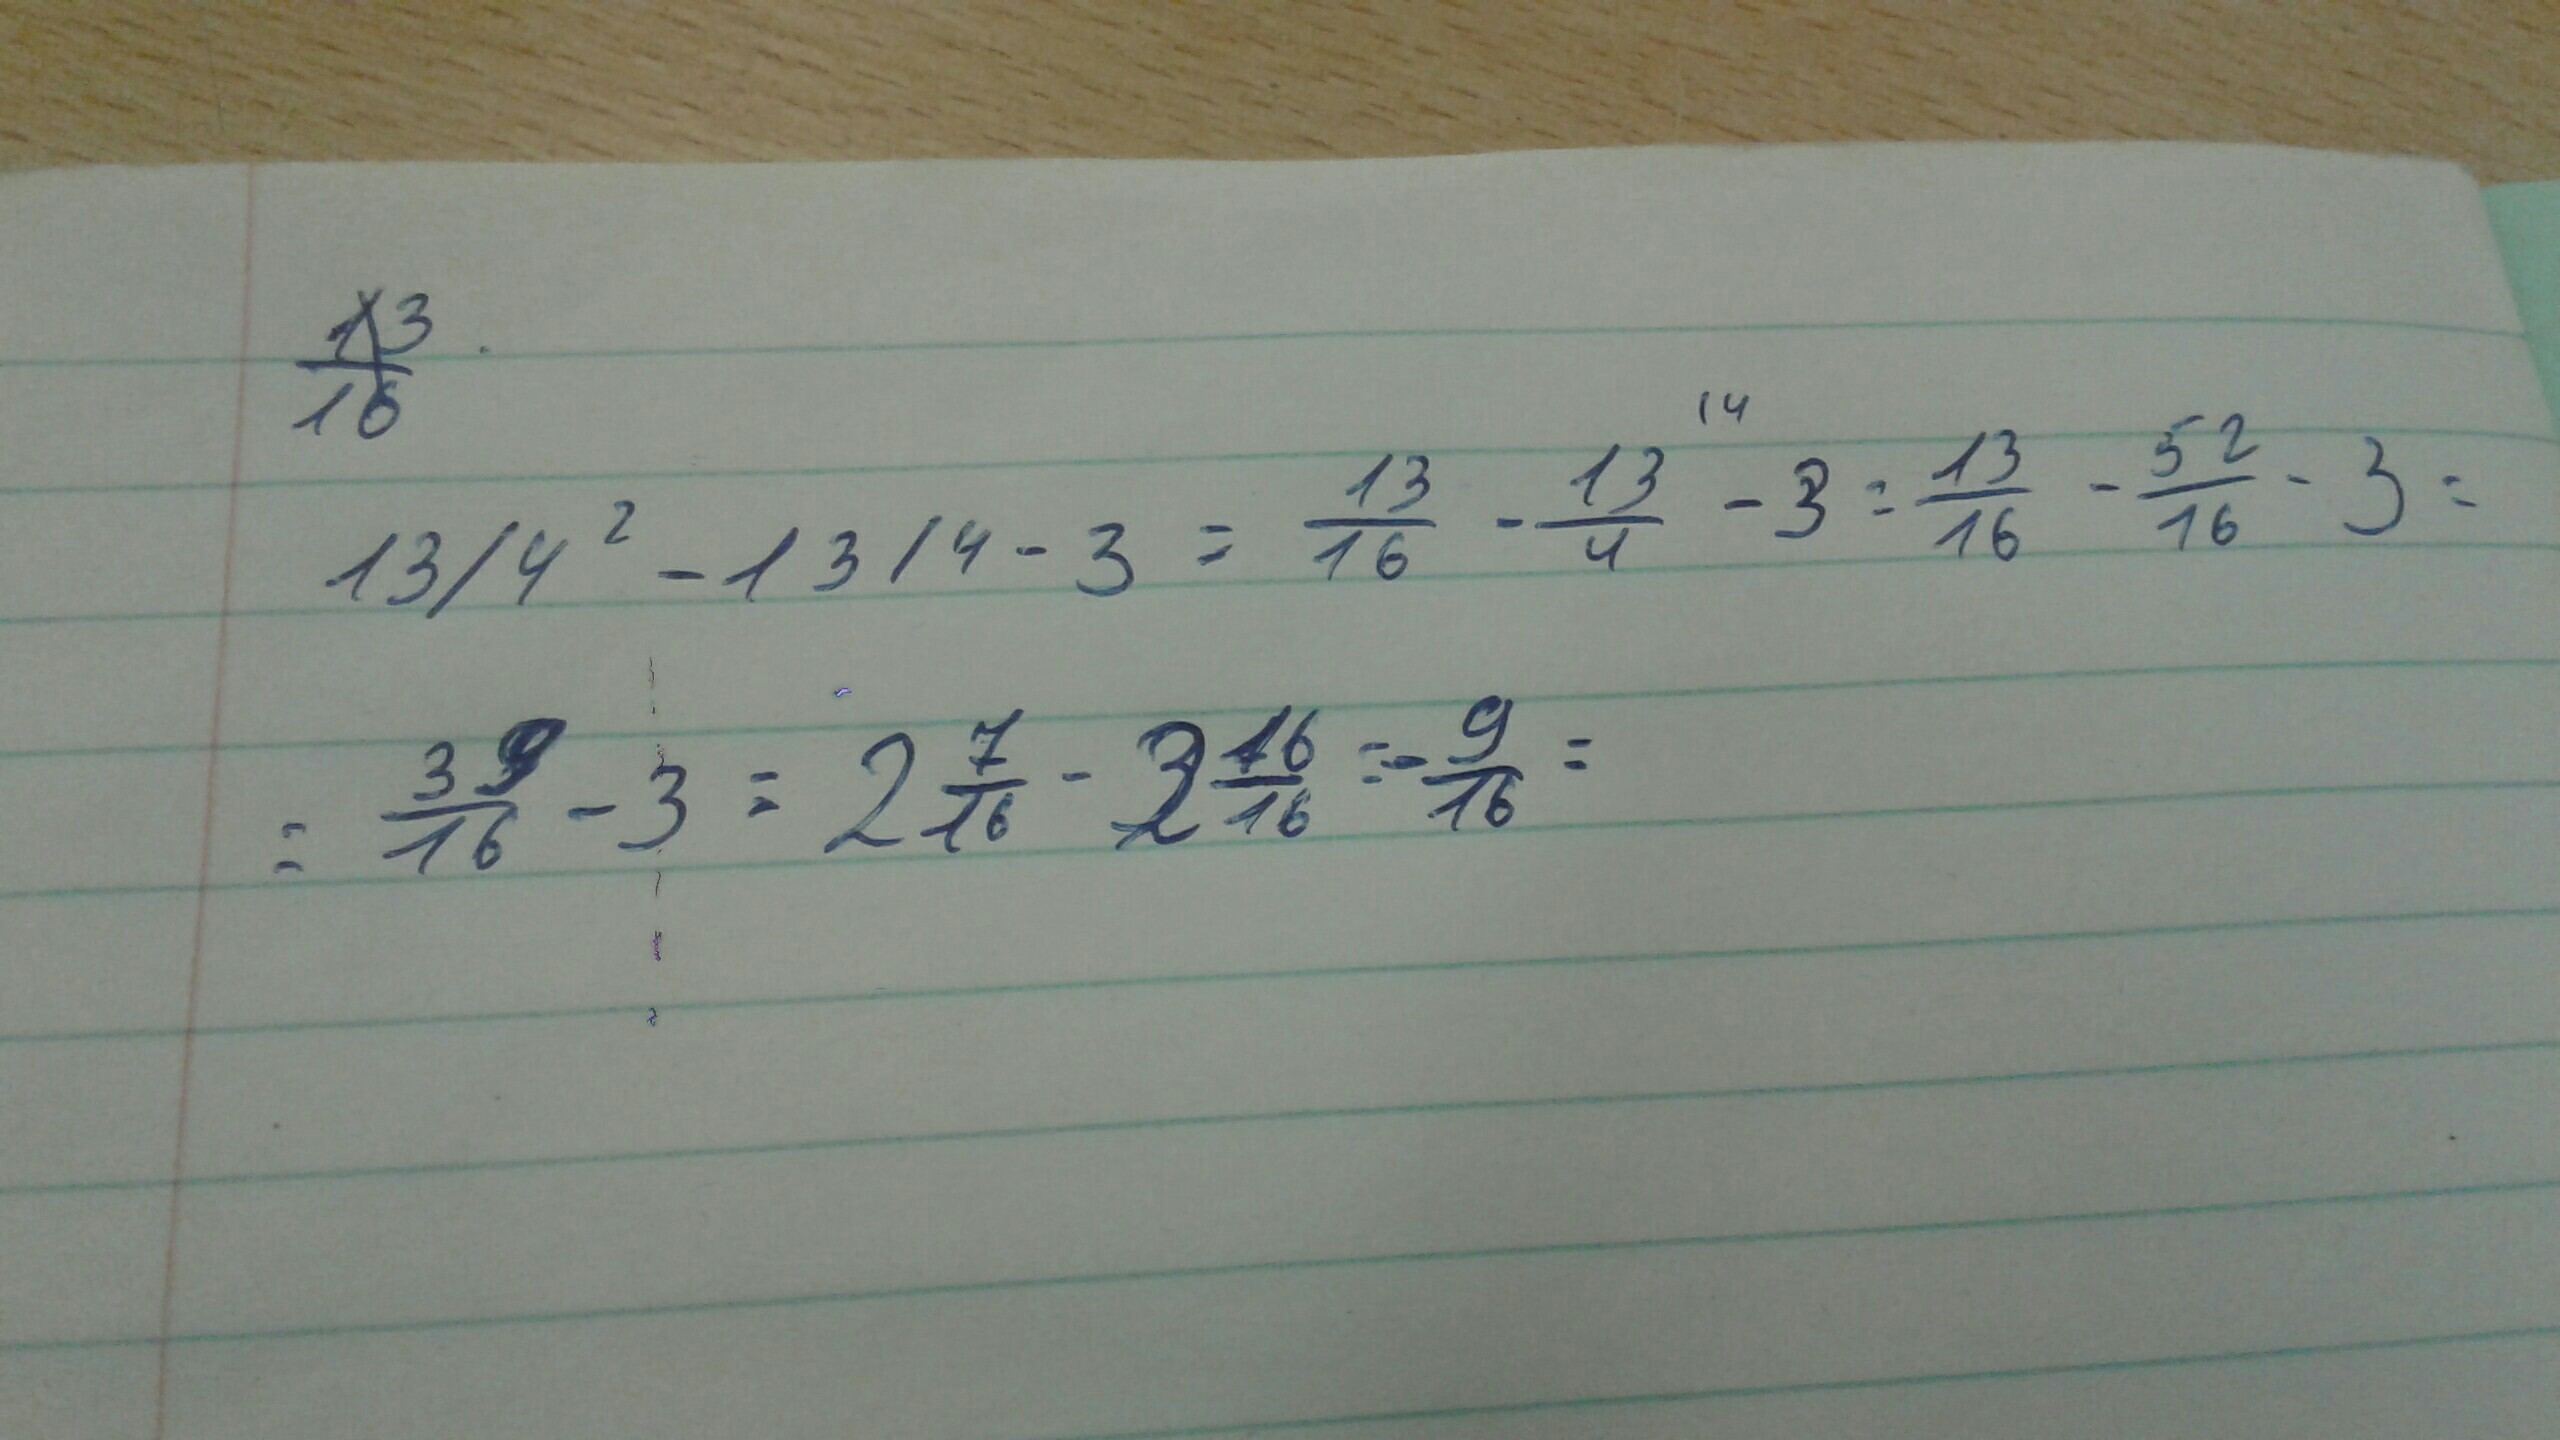 13/16
13/4² - 13/4 - 3 = 13/16 - 13/4 |4 - 3 = 13/16 - 52/16 - 3 =
= 39/16 - 3 = 2 7/16 - 2 16/16 = - 9/16 =